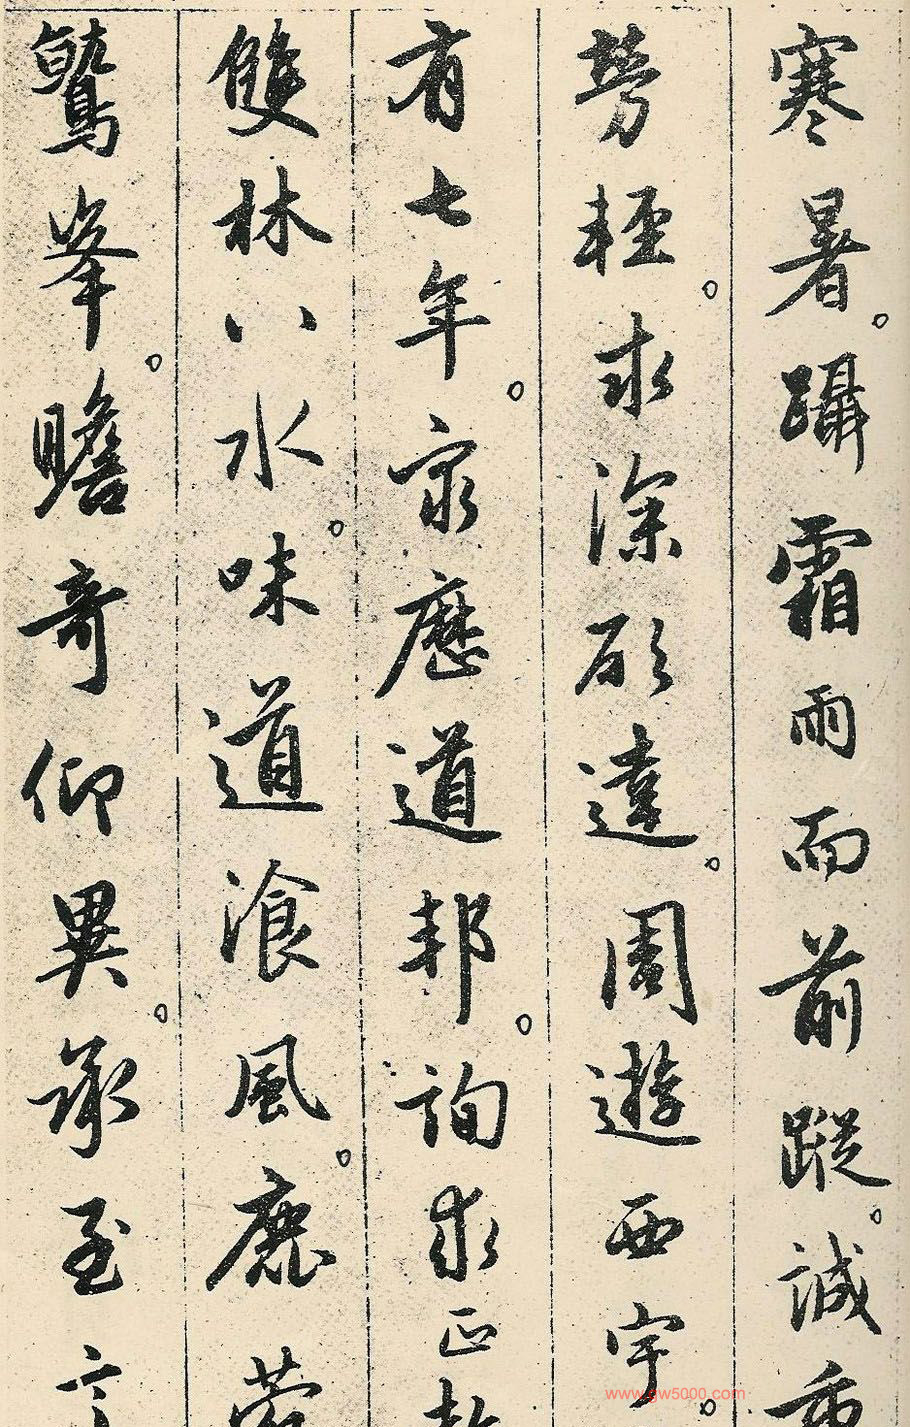 寒暑。躡霜雨而前蹤。誠重
勞輕。求深願達。周遊西宇。
有七年。窮歷道邦。詢求正教
雙林八水。味道湌風。鹿菀
鷲峯。瞻奇仰異。承至言
www.gw5000.com